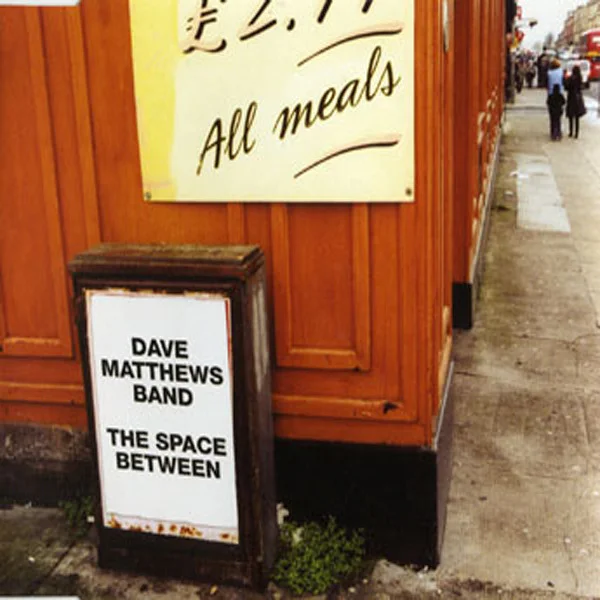 £2.
All meals
DAVE
MATTHEWS
BAND
THE SPACE
BETWEEN